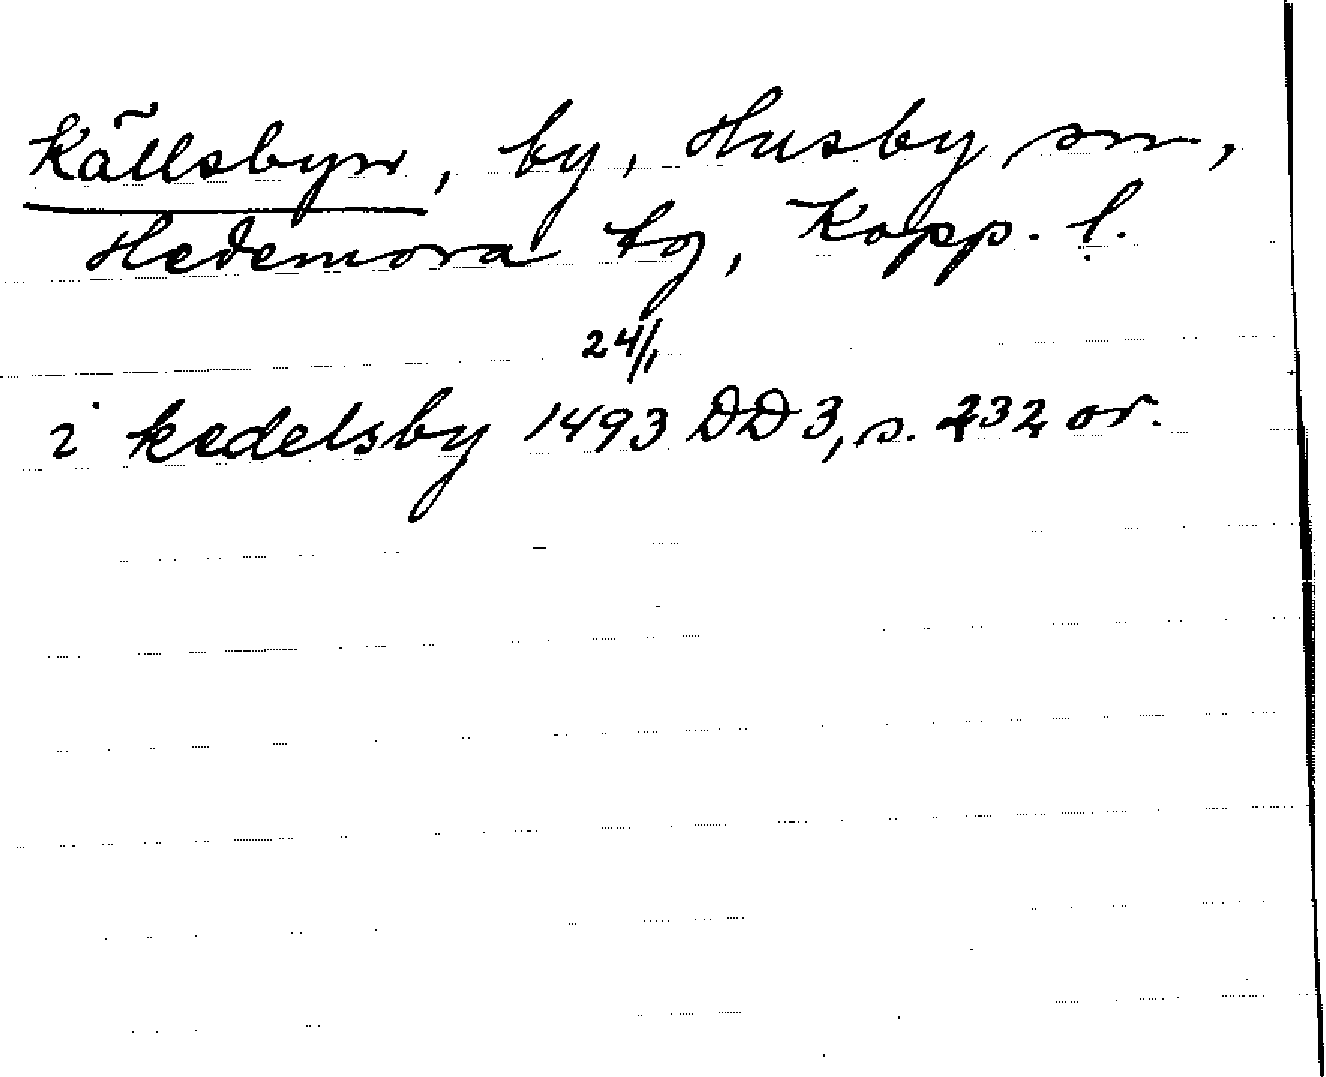 Källsbyn, by, Husby sn,
Hedemora tg, Kopp. l.
24/1
i kedelsby 1493 DD 3, s. 232 or.